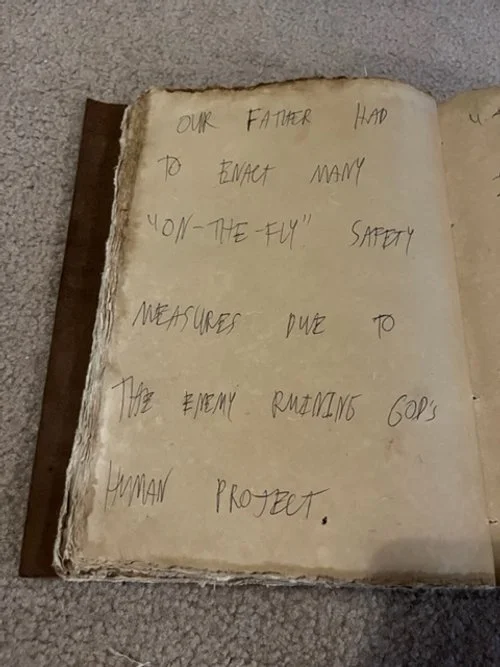 OUR FATHER HAD
TO ENACT MANY
"ON-THE-FLY" SAFETY
MEASURES DUE TO
THE ENEMY RUINING GOD'S
HUMAN PROJECT.